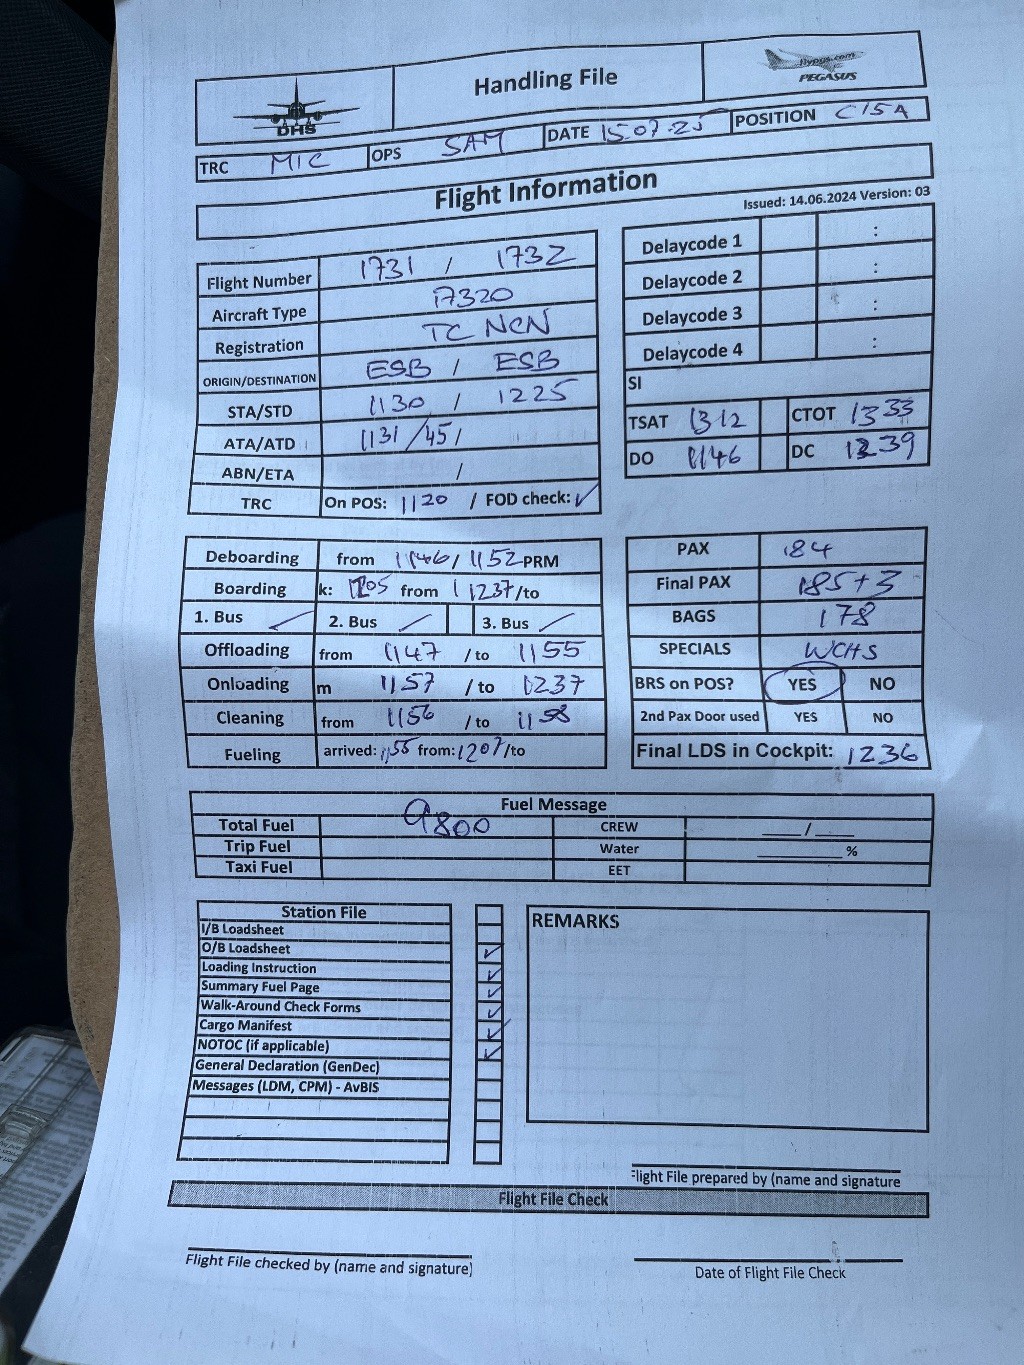 DHS
Handling File
flypgs.com
PEGASUS
TRC MIC OPS SAM DATE 15.07.25 POSITION C15A
Flight Information
Issued: 14.06.2024 Version: 03
Flight Number 1731 / 1732
Aircraft Type A320
Registration TC NCN
ORIGIN/DESTINATION ESB / ESB
STA/STD 1130 / 1225
ATA/ATD 1131/45 /
ABN/ETA /
TRC On POS: 1120 / FOD check: ✓
Delaycode 1 :
Delaycode 2 :
Delaycode 3 :
Delaycode 4 :
SI
TSAT 1312 CTOT 1333
DO 1146 DC 1239
Deboarding from 1146 / 1152 PRM
Boarding k: 1205 from 1237/to
1. Bus 2. Bus 3. Bus
Offloading from 1147 /to 1155
Onloading m 1157 /to 1237
Cleaning from 1156 /to 1158
Fueling arrived: 1155 from: 1207/to
PAX 184
Final PAX 185+3
BAGS 178
SPECIALS WCHS
BRS on POS? YES NO
2nd Pax Door used YES NO
Final LDS in Cockpit: 1236
Fuel Message
Total Fuel 9800 CREW /
Trip Fuel Water %
Taxi Fuel EET
Station File
I/B Loadsheet
O/B Loadsheet ✓
Loading Instruction ✓
Summary Fuel Page ✓
Walk-Around Check Forms ✓
Cargo Manifest ✓
NOTOC (if applicable) ✓
General Declaration (GenDec)
Messages (LDM, CPM) - AvBIS
REMARKS
Flight File prepared by (name and signature
Flight File Check
Flight File checked by (name and signature)
Date of Flight File Check